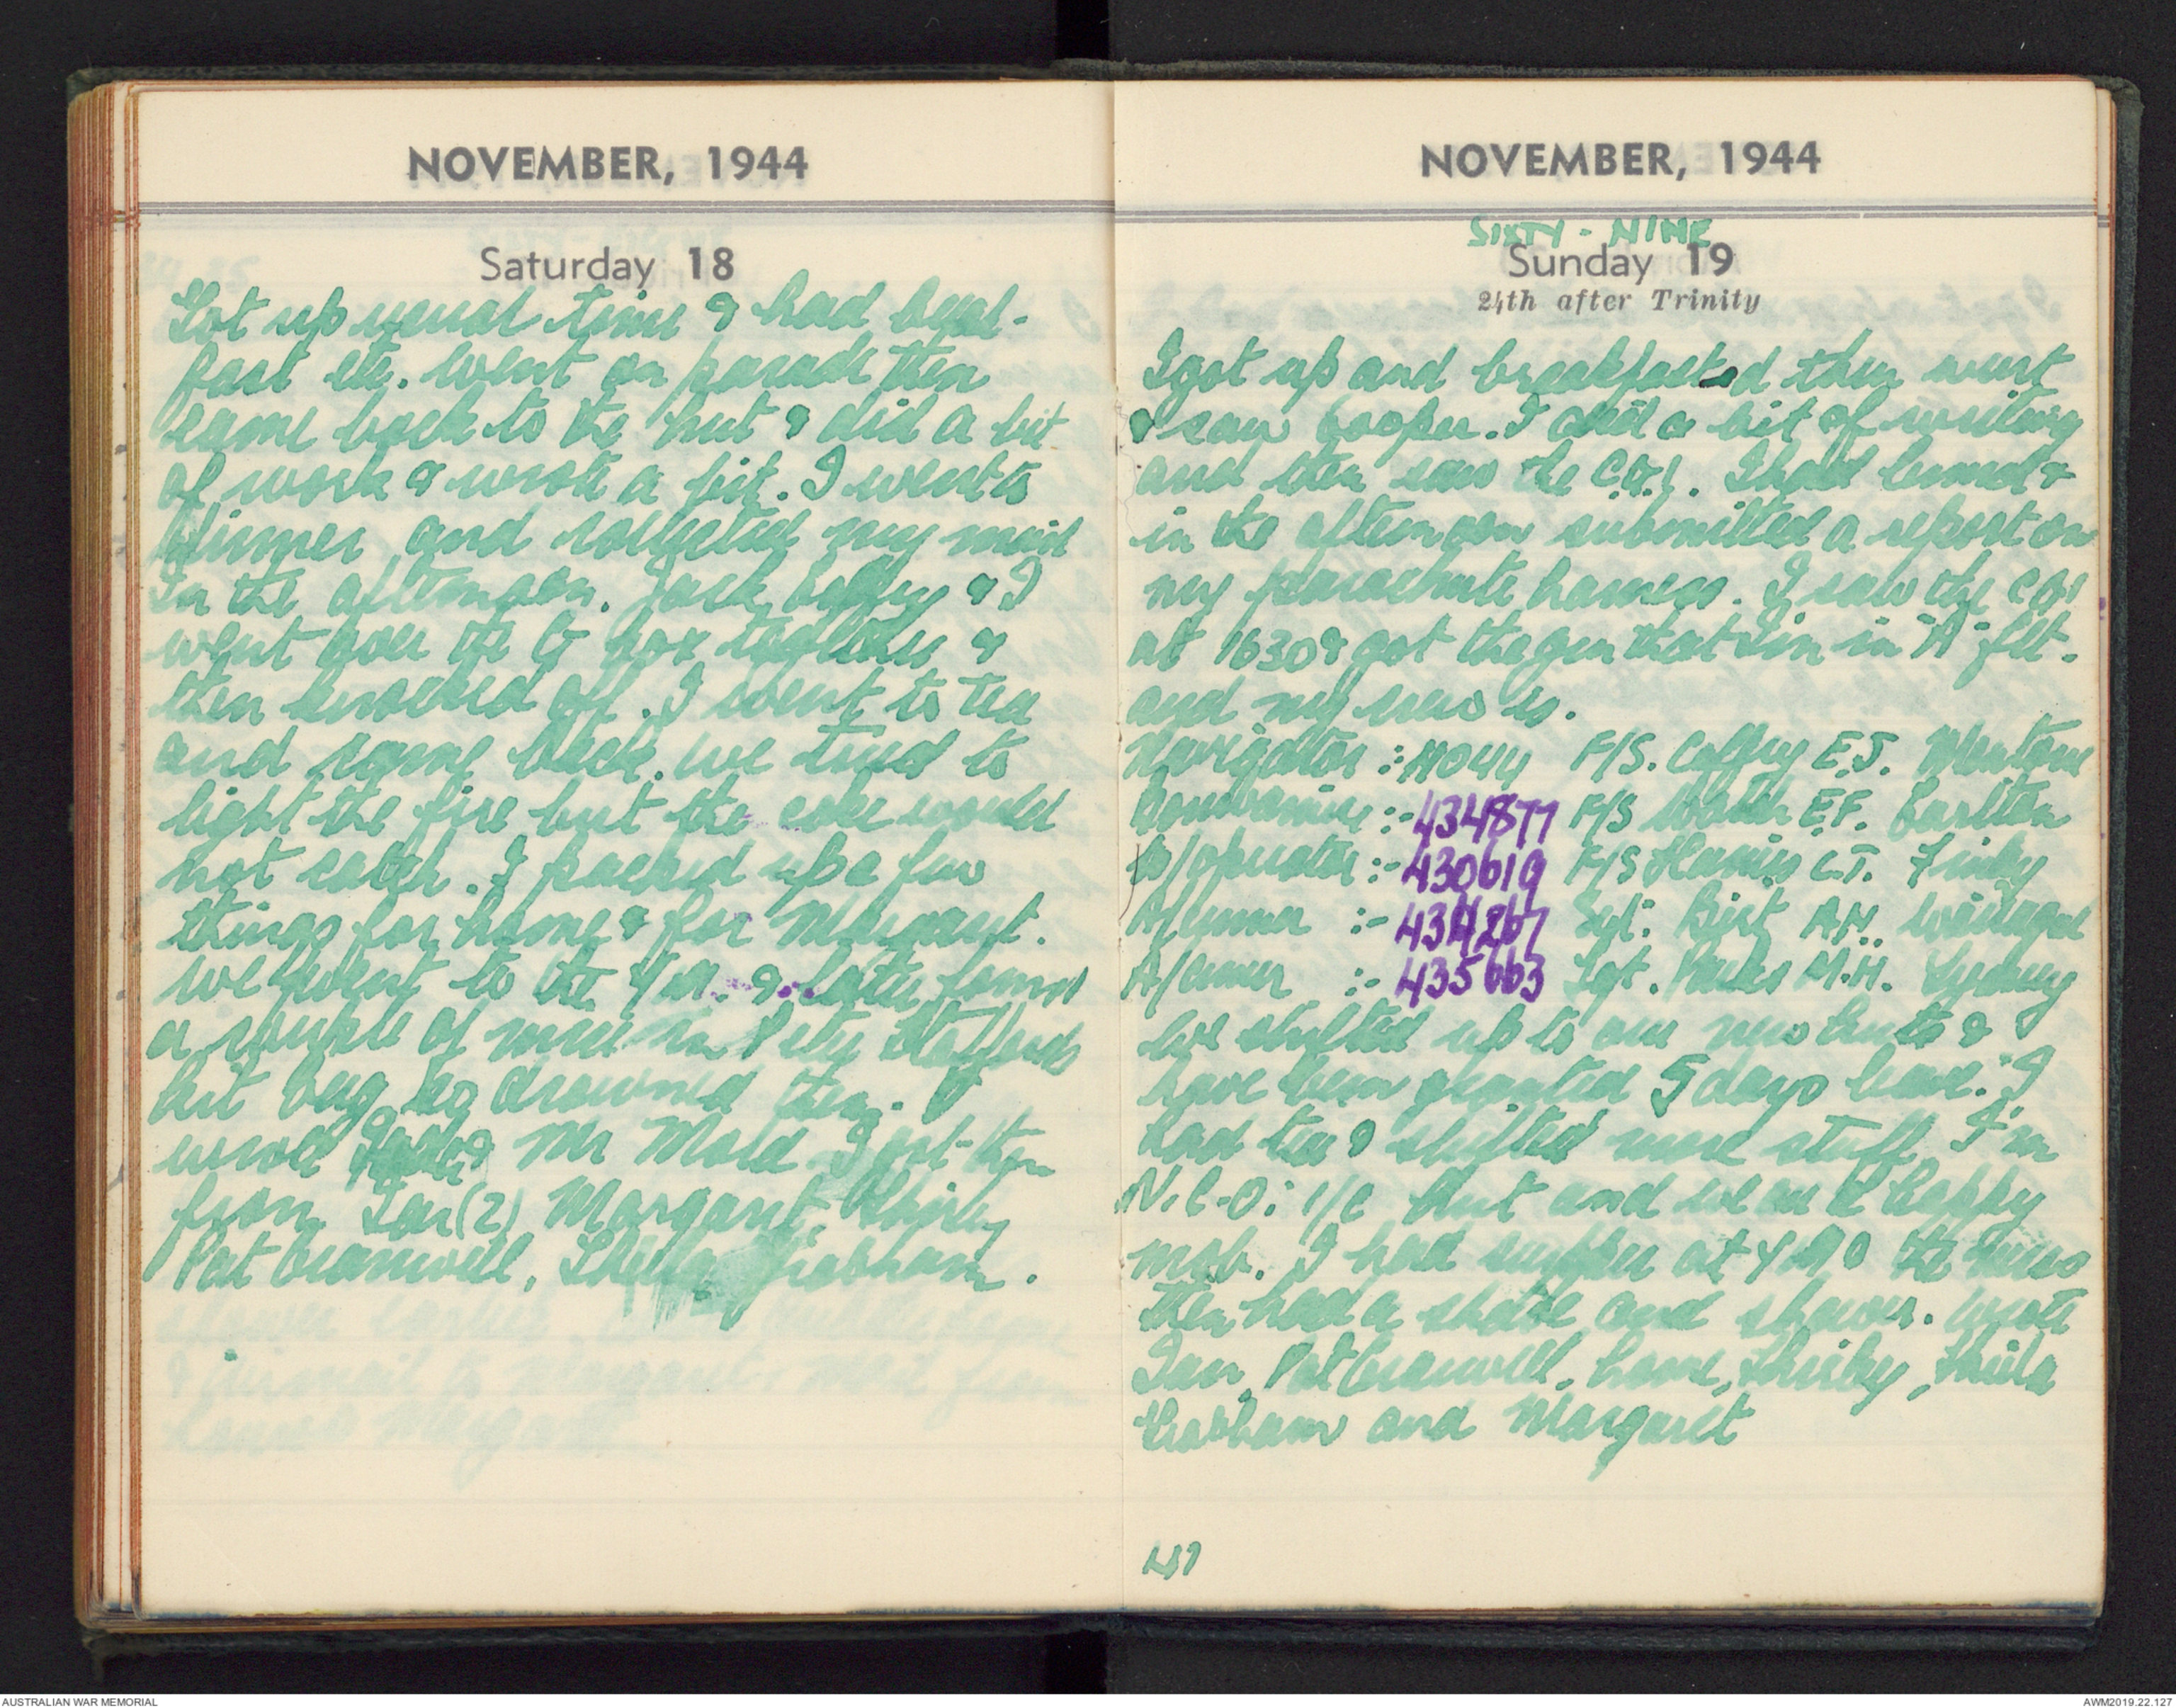 NOVEMBER, 1944
Saturday 18
Got up usual time & had break-
fast etc. Went on parade then
came back to the hut & did a bit
of work & wrote a bit. I went to
dinner and collected my mail
In the afternoon. Jack, Coffey & I
went over the G box together &
then knocked off. I went to tea
and came back. We tried to
light the fire but the coke would
not catch. I packed up a few
things for home & for Margaret.
We went to the Y.M. & later found
a couple of mice in Peter
kit bag so drowned them. I
wrote & Mr Mold. I got then
from Ian (2), Margaret, Shirley
Pat Cranwell, Sheila Grabham.
NOVEMBER, 1944
SIXTY-NINE
Sunday 19
24th after Trinity
I got up and breakfasted then went
& saw Cooper. I did a bit of writing
and then saw the C.G.I. I had lunch &
in the afternoon submitted a report on
my parachute harness. I saw the CGI
at 1630 & got the gen that I'm in "A" flt.
and my crew is.
Navigator :- F/S. Coffey E.J. Mentone
:- 434877 F/S E.F. Carlton
W/operator :- 430619 F/S Harris C.T. Finley
A/Gunner :- 434267 Sgt. Birt A.H.
A/Gunner :- 435663 Sgt. M.H. Sydney
We shifted up to our new huts &
have been granted 5 days leave. I
had tea & shifted more stuff. I'm
N.C.O. i/c hut and we are a happy
mob. I had supper at Y.M & the mess
then had a shave and shower. Wrote
Ian, Pat Cranwell, home, Shirley, Sheila
Grabham and Margaret
47
AUSTRALIAN WAR MEMORIAL
AWM2019.22.127